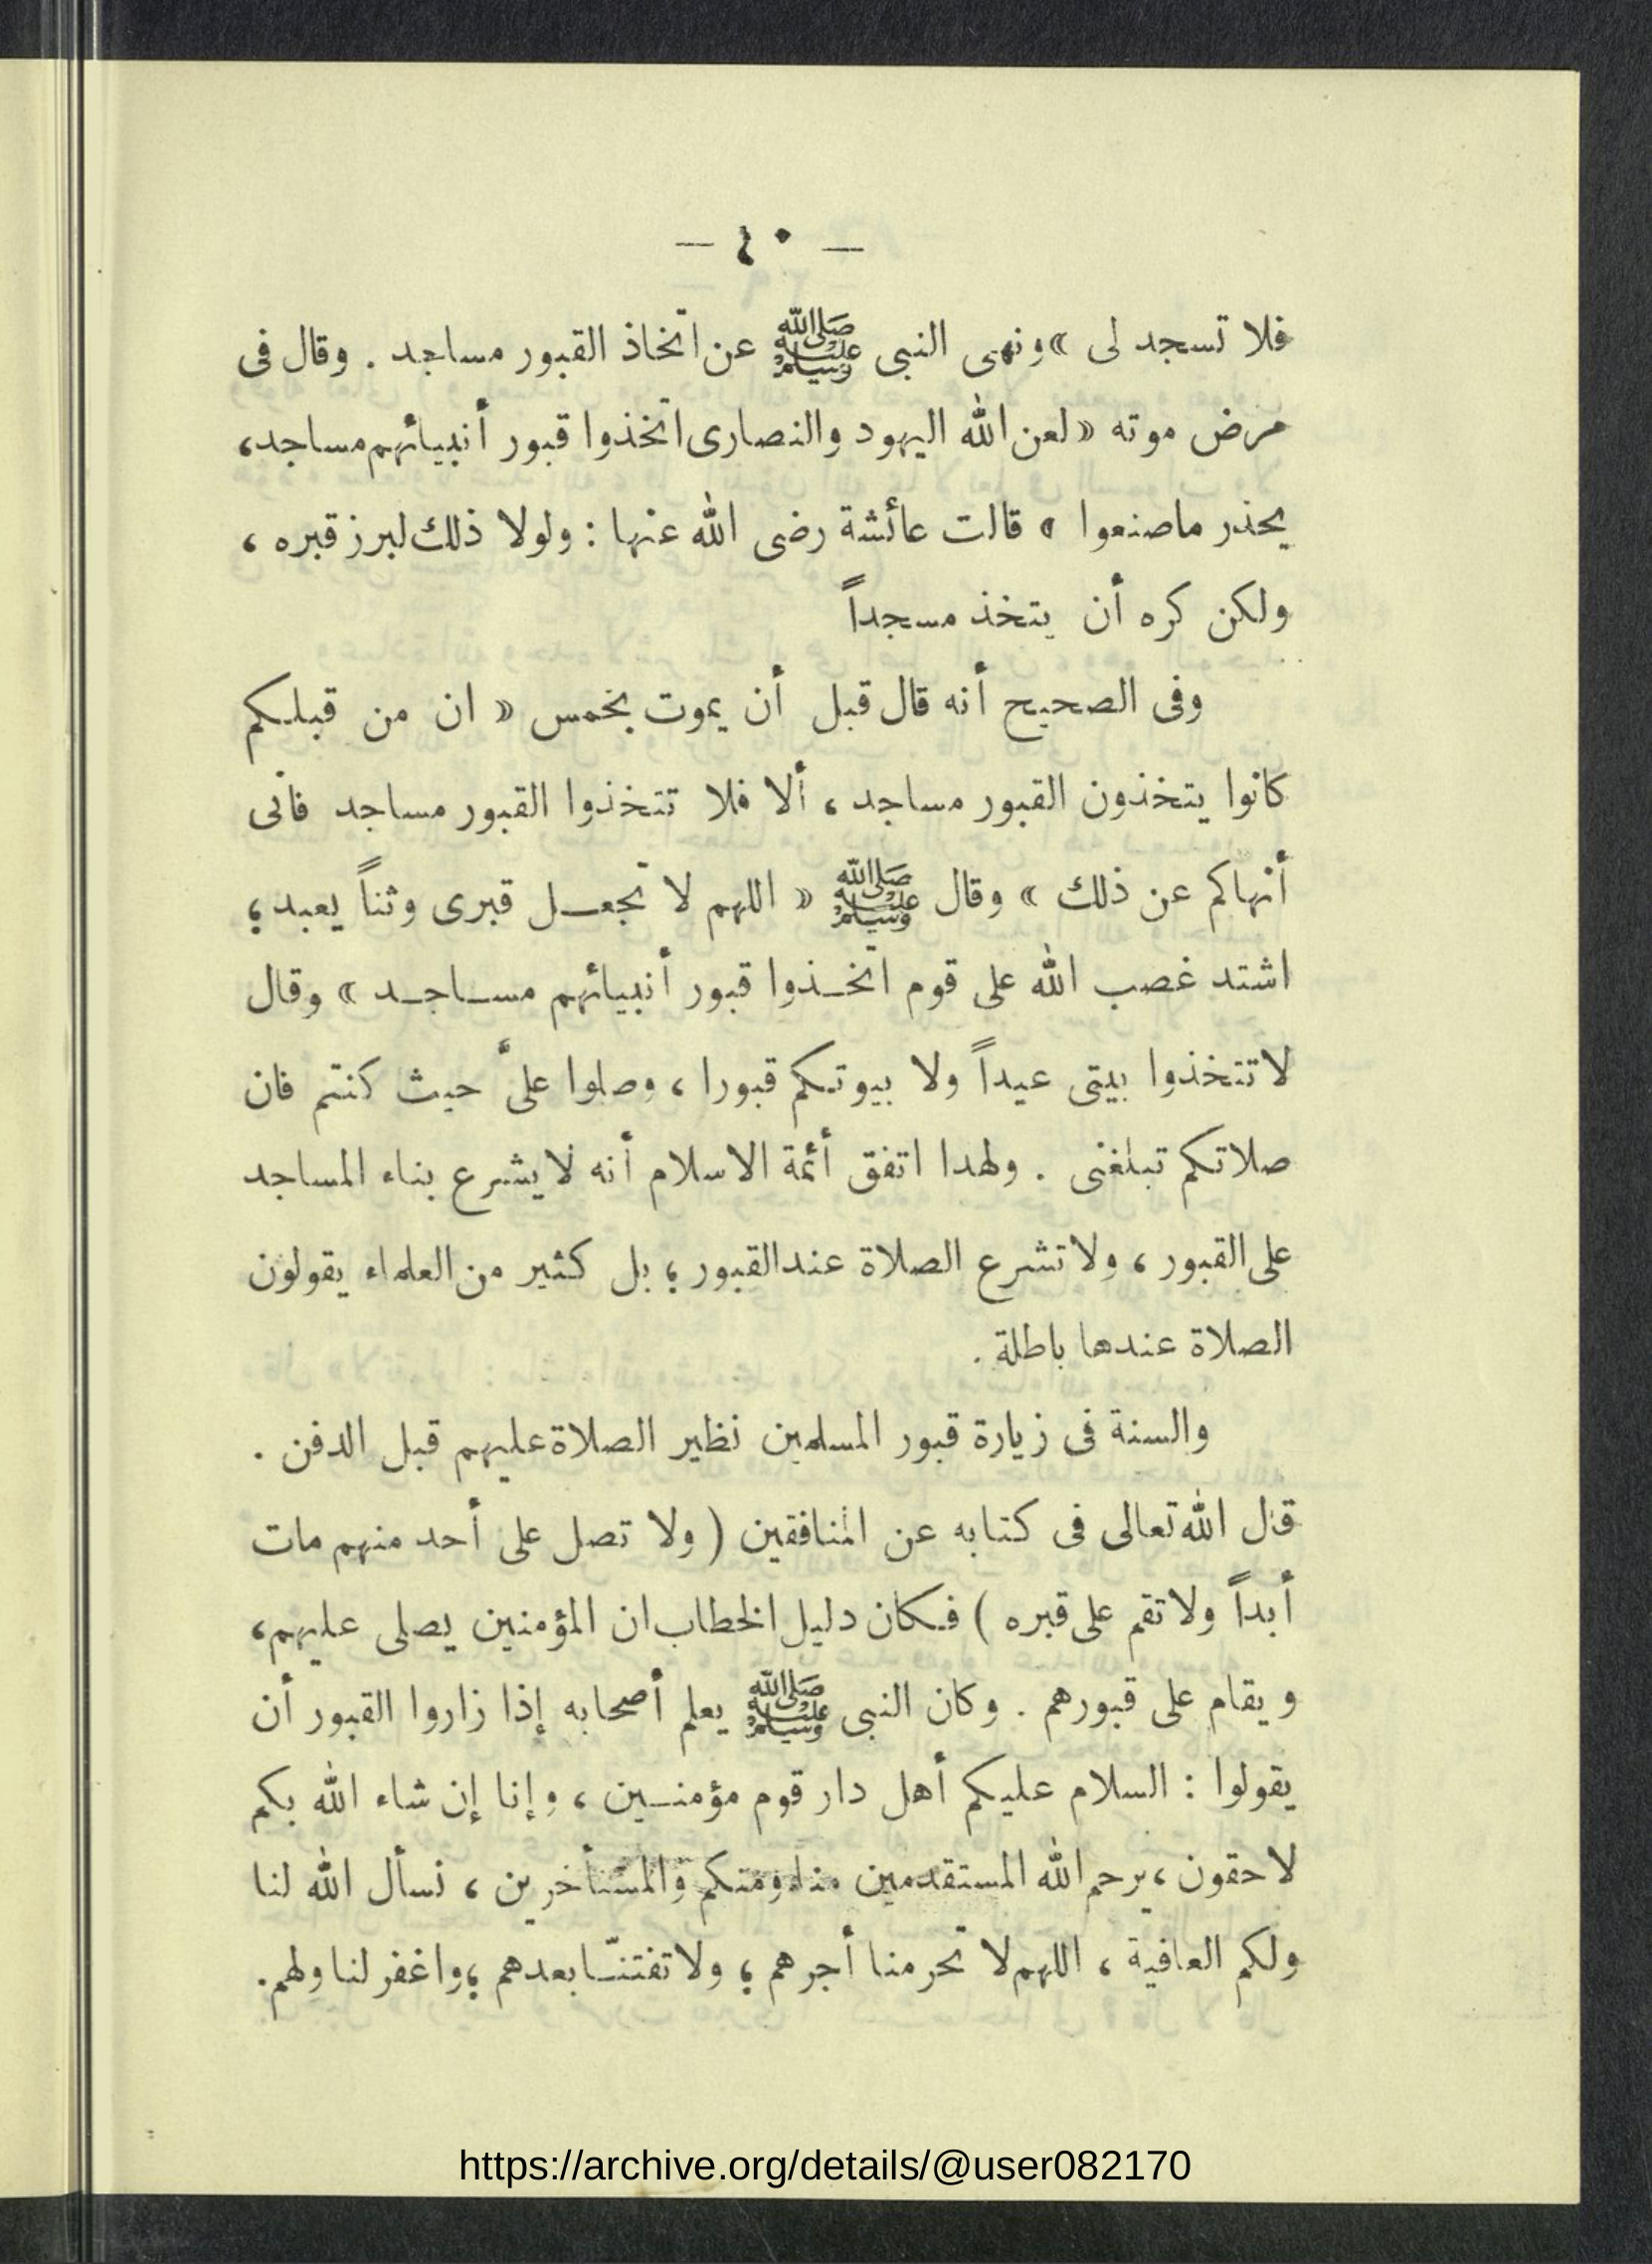 — ٤٠ —
فلا تسجد لى » ونهى النبى ﷺ عن اتخاذ القبور مساجد . وقال فى
مرض موته « لعن الله اليهود والنصارى اتخذوا قبور أنبيائهم مساجد،
يحذر ماصنعوا » قالت عائشة رضى الله عنها : ولولا ذلك لبرز قبره ،
ولكن كره أن يتخذ مسجداً
وفى الصحيح أنه قال قبل أن يموت بخمس « ان من قبلكم
كانوا يتخذون القبور مساجد ، ألا فلا تتخذوا القبور مساجد فانى
أنهاكم عن ذلك » وقال ﷺ « اللهم لا تجعل قبرى وثناً يعبد ؛
اشتد غصب الله على قوم اتخذوا قبور أنبيائهم مساجد » وقال
لاتتخذوا بيتى عيداً ولا بيوتكم قبورا ، وصلوا علىَّ حيث كنتم فان
صلاتكم تبلغنى . ولهدا اتفق أئمة الاسلام أنه لايشرع بناء المساجد
على القبور ، ولاتشرع الصلاة عندالقبور ؛ بل كثير من العلماء يقولون
الصلاة عندها باطلة .
والسنة فى زيارة قبور المسلمين نظير الصلاة عليهم قبل الدفن .
قال الله تعالى فى كتابه عن المنافقين ( ولا تصل على أحد منهم مات
أبداً ولاتقم على قبره ) فكان دليل الخطاب ان المؤمنين يصلى عليهم،
ويقام على قبورهم . وكان النبى ﷺ يعلم أصحابه إذا زاروا القبور أن
يقولوا : السلام عليكم أهل دار قوم مؤمنين ، وإنا إن شاء الله بكم
لاحقون ، يرحم الله المستقدمين منا ومنكم والمستأخرين ، نسأل الله لنا
ولكم العافية ، اللهم لا تحرمنا أجرهم ؛ ولاتفتنّا بعدهم ؛ واغفر لنا ولهم.
https://archive.org/details/@user082170